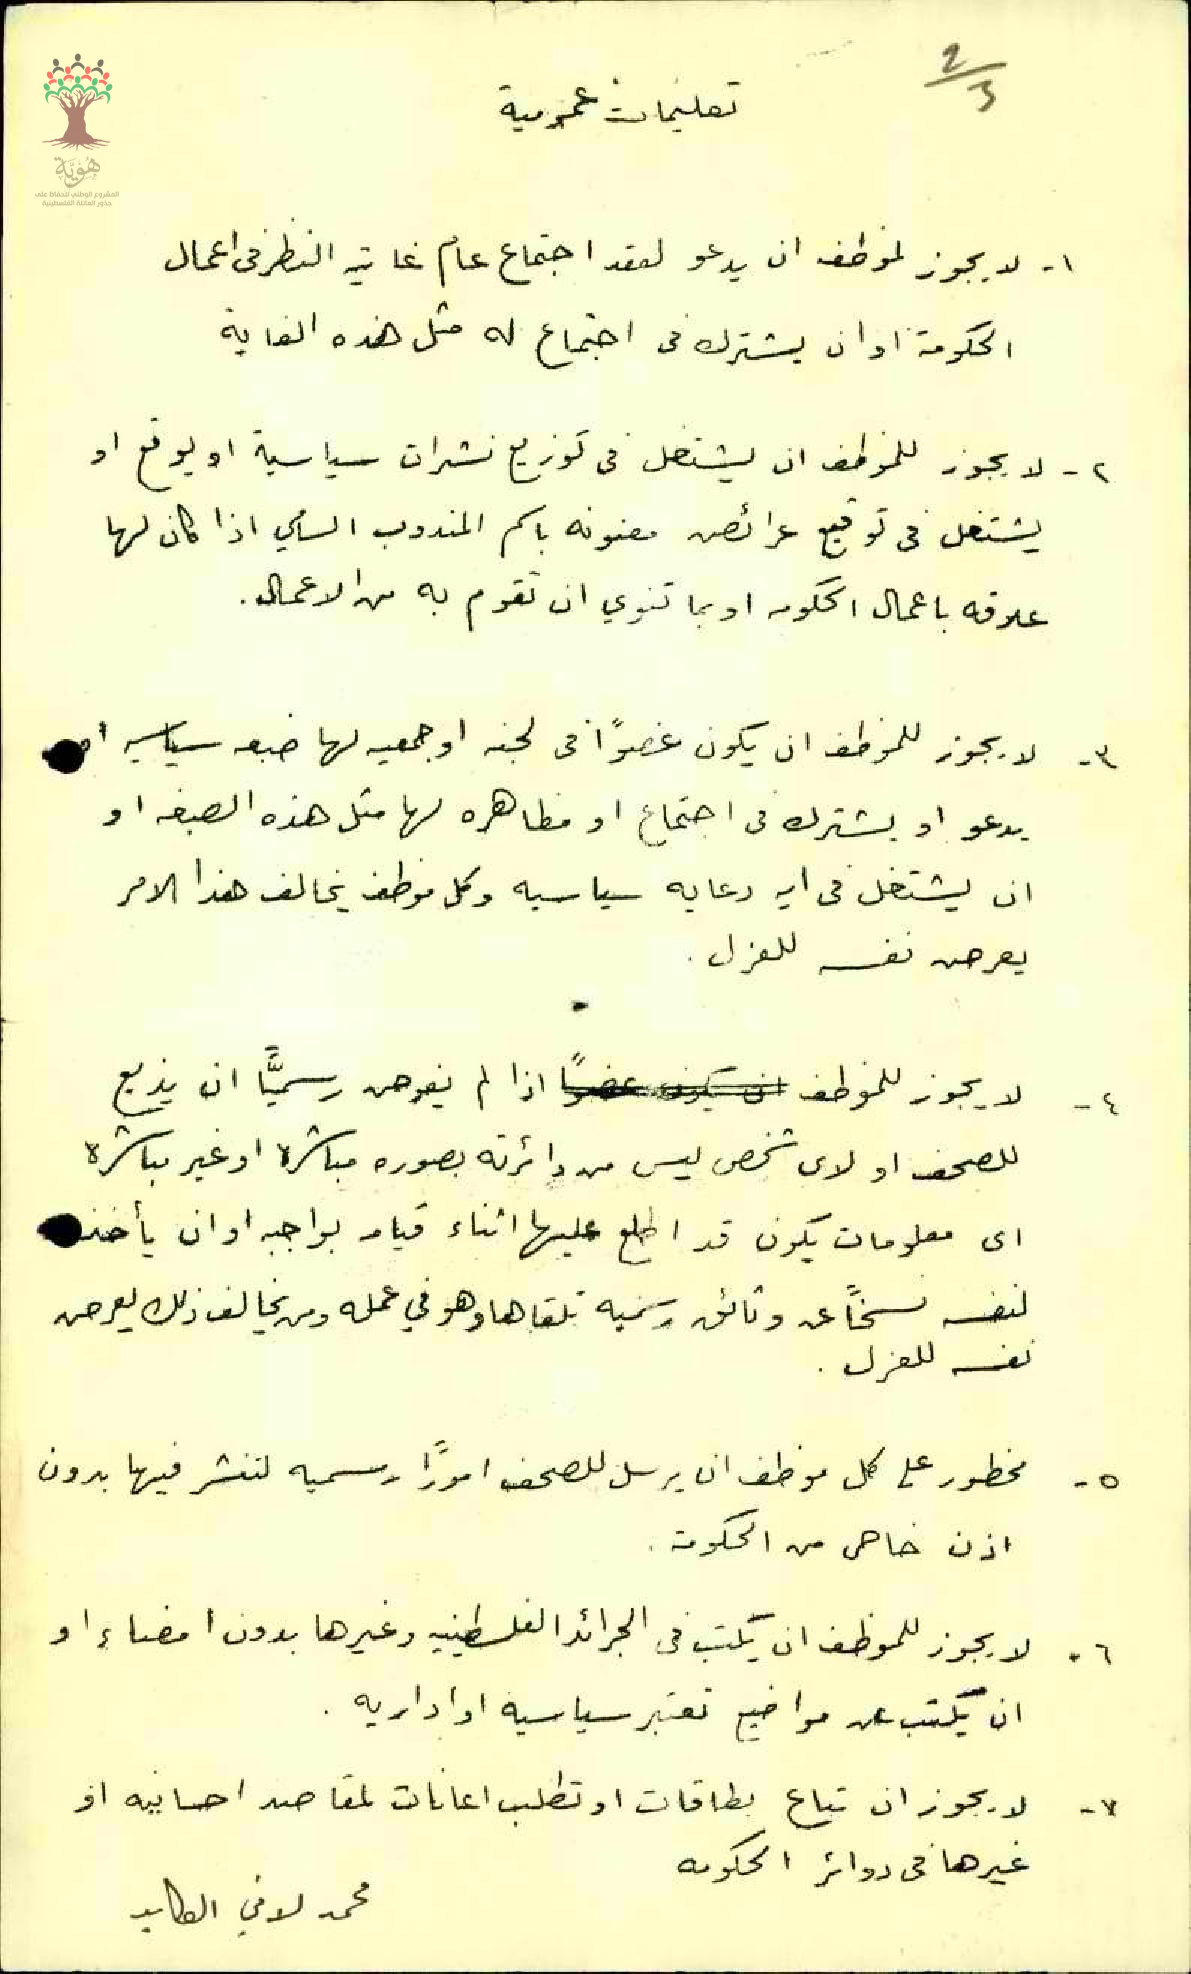 2/3
هُوِيَّة
المشروع الوطني للحفاظ على
جذور العائلة الفلسطينية
تعليمات عمومية
١- لا يجوز لموظف ان يدعو لعقد اجتماع عام غايته النظر في اعمال
الحكومة او ان يشترك في اجتماع له مثل هذه الغاية
٢- لا يجوز للموظف ان يشتغل في توزيع نشرات سياسية او يوقع او
يشتغل في توقيع عرائض معنونه باسم المندوب السامي اذا كان لها
علاقه باعمال الحكومه او بما تنوي ان تقوم به من الاعمال.
٣- لا يجوز للموظف ان يكون عضوًا في لجنه او جمعيه لها صبغه سياسيه او
يدعو او يشترك في اجتماع او مظاهره لها مثل هذه الصبغه او
ان يشتغل في ايه دعايه سياسيه وكل موظف يخالف هذا الامر
يعرض نفسه للعزل.
٤- لا يجوز للموظف ان يكون عضوًا اذا لم يفوض رسميًّا ان يذيع
للصحف او لاى شخص ليس من دائرته بصوره مباشرة او غير مباشرة
اى معلومات يكون قد اطلع عليها اثناء قيامه بواجبه او ان يأخذ
لنفسه نسخًا عن وثائق رسميه تلقاها وهو في عمله ومن يخالف ذلك يعرض
نفسه للعزل.
٥- محظور على كل موظف ان يرسل للصحف امورًا رسميه لتنشر فيها بدون
اذن خاص من الحكومة.
٦- لا يجوز للموظف ان يكتب في الجرائد الفلسطينيه وغيرها بدون امضاء او
ان يكتب عن مواضيع تعتبر سياسيه او اداريه.
٧- لا يجوز ان تباع بطاقات او تطلب اعانات لمقاصد احسانيه او
غيرها في دوائر الحكومه
محمد لافي العايد